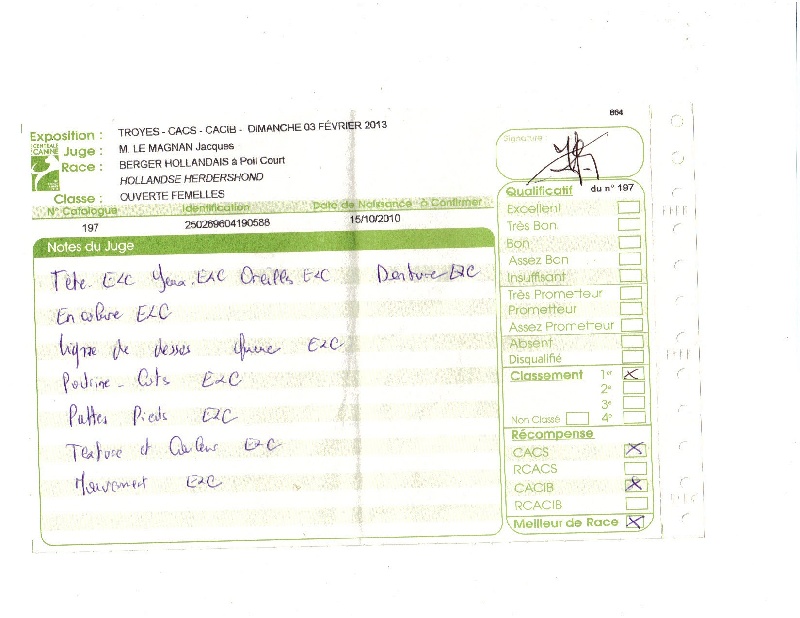 864
Exposition : TROYES - CACS - CACIB - DIMANCHE 03 FÉVRIER 2013
CENTRALE CANINE
Juge : M. LE MAGNAN Jacques
Race : BERGER HOLLANDAIS à Poil Court
HOLLANDSE HERDERSHOND
Classe : OUVERTE FEMELLES
N° Catalogue Identification Date de Naissance à Confirmer
197 250269604190588 15/10/2010
Notes du Juge
Tête ExC Yeux ExC Oreilles ExC Denture ExC
Encolure ExC
Ligne de dessus Queue ExC
Poitrine - Cots ExC
Pattes Pieds ExC
Texture et Couleur ExC
Mouvement ExC
Signature :
Qualificatif du n° 197
Excellent
Très Bon
Bon
Assez Bon
Insuffisant
Très Prometteur
Prometteur
Assez Prometteur
Absent
Disqualifié
Classement 1er X
2e
3e
Non Classé 4e
Récompense
CACS X
RCACS
CACIB X
RCACIB
Meilleur de Race X